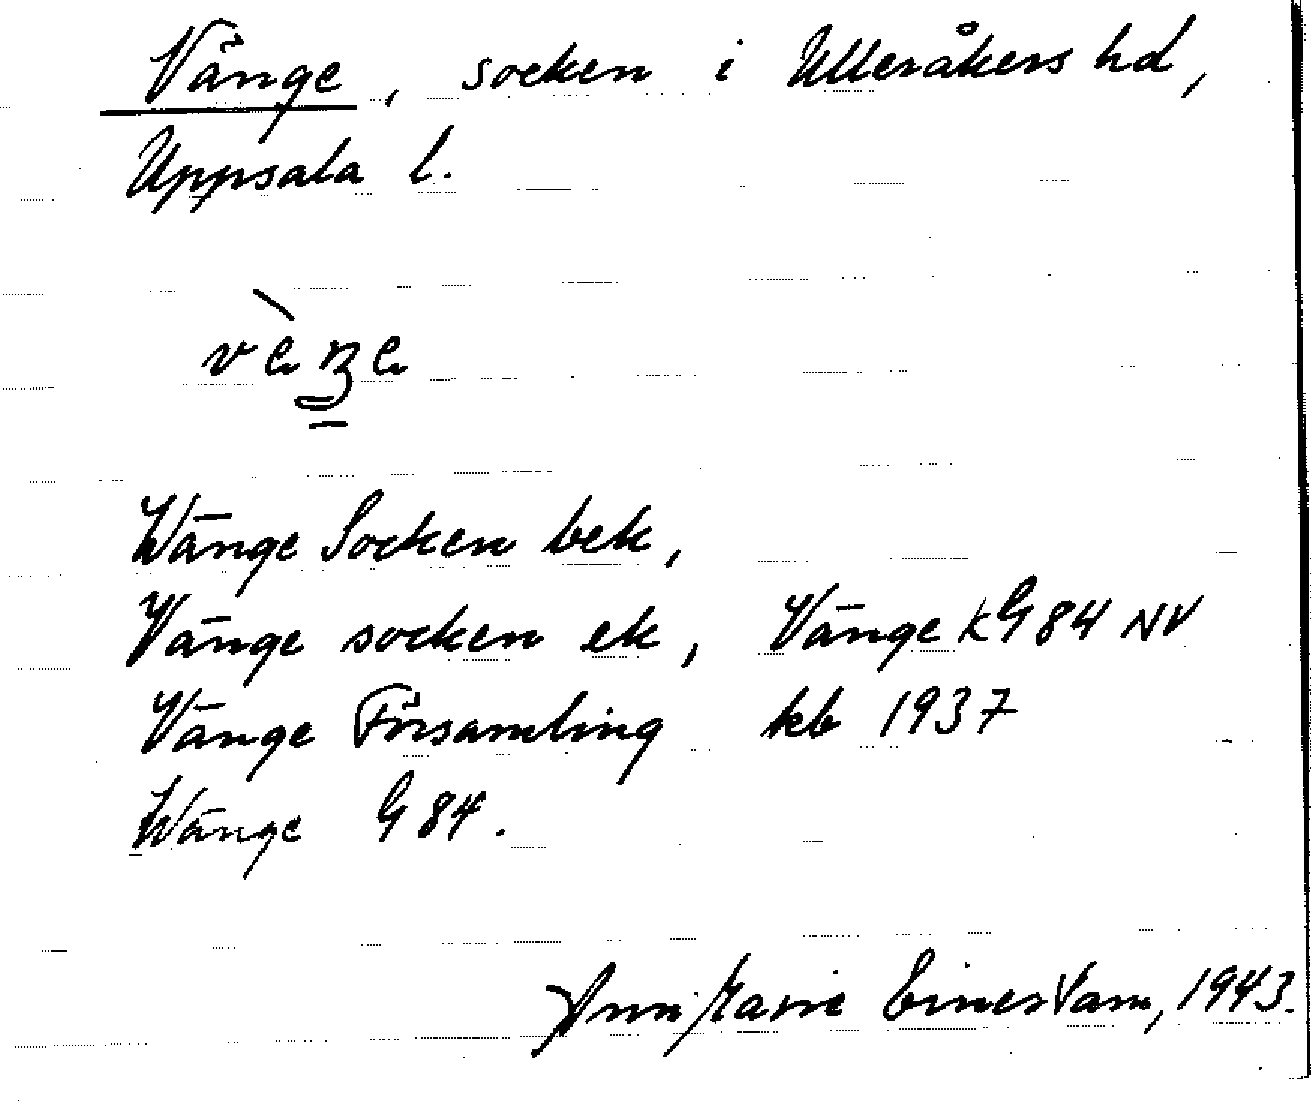 Vänge, socken i Ulleråkers hd,
Uppsala l.
Wänge Socken bek,
Vänge socken ek, Vänge k G 84 NV
Vänge Församling kb 1937
Wänge G 84.
Ann Marie Einerstam, 1943.